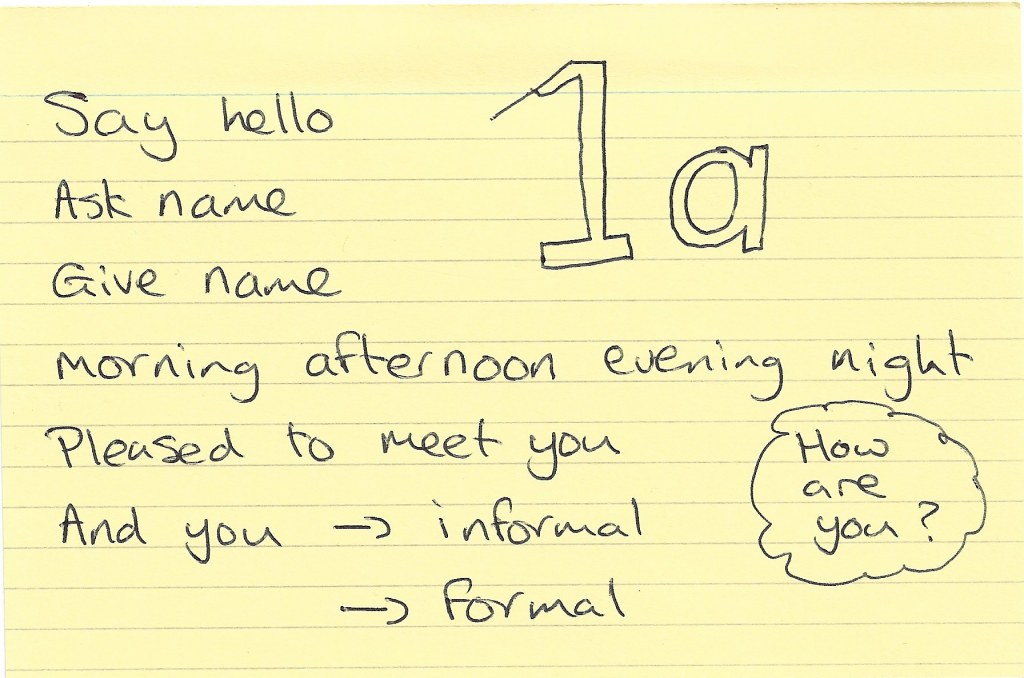 Say hello
1a
Ask name
Give name
morning afternoon evening night
Pleased to meet you
And you → informal
→ formal
How
are
you?